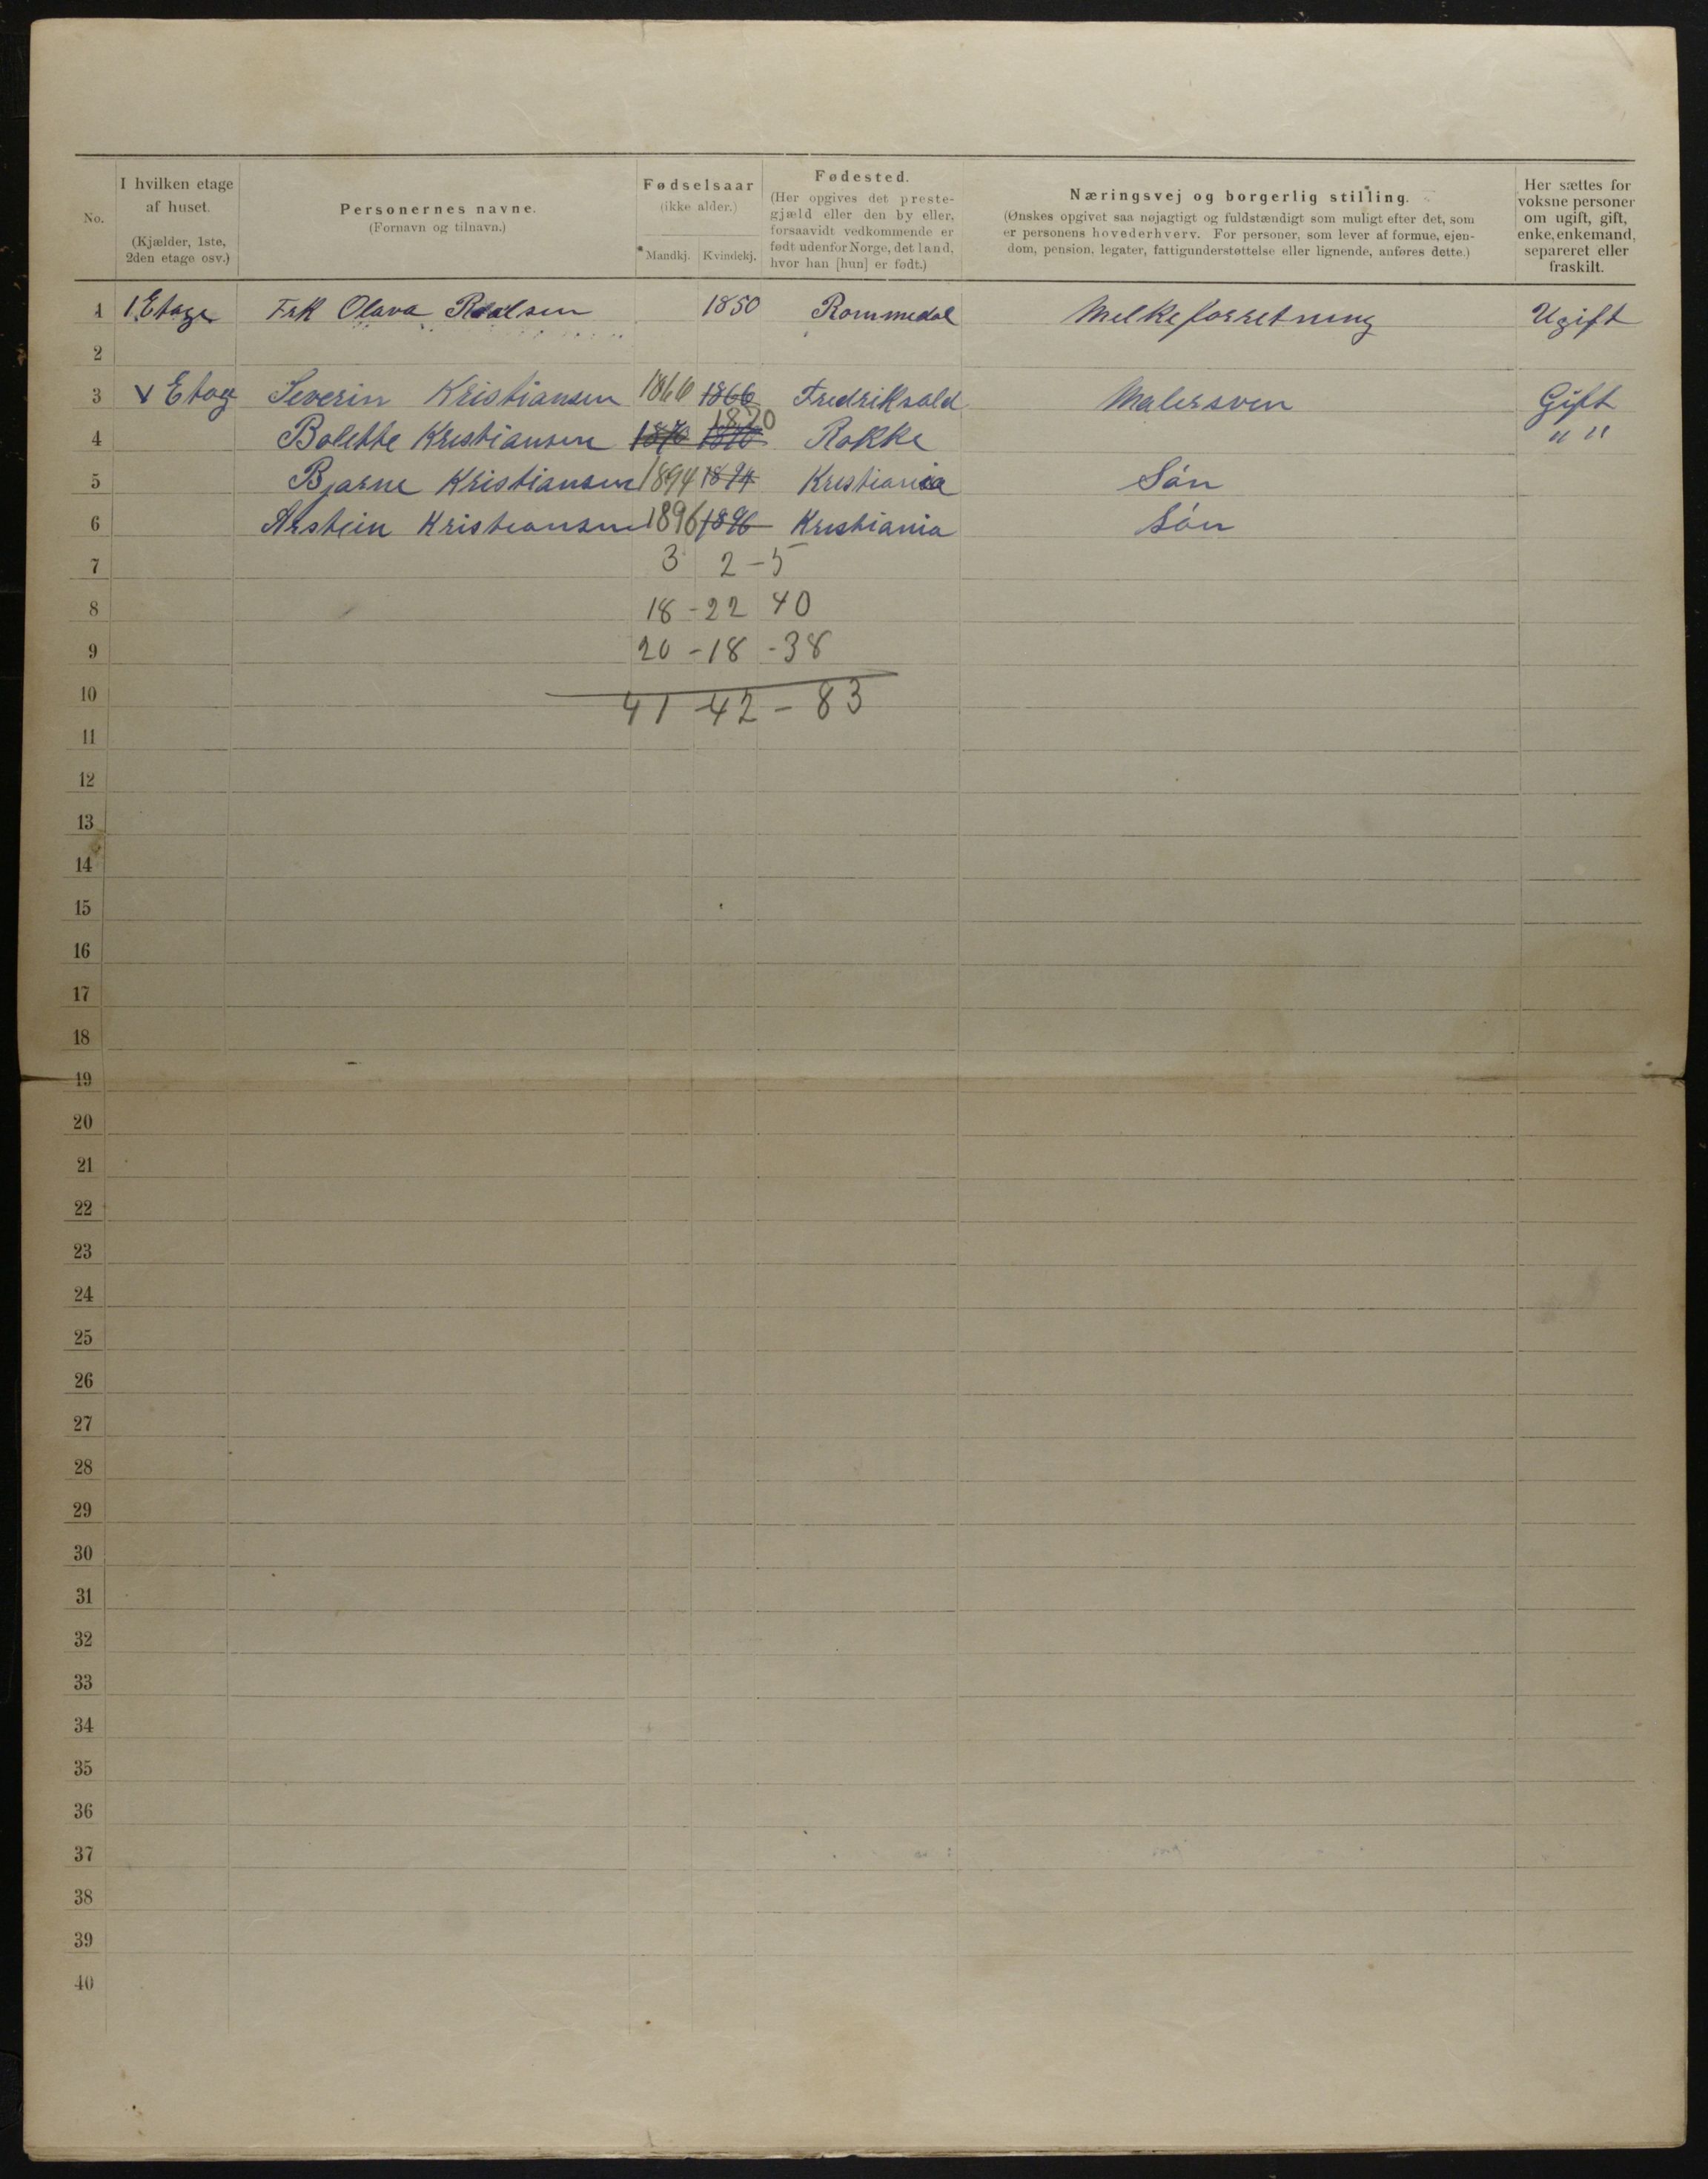 No.
I hvilken etage
af huset.
(Kjælder, 1ste,
2den etage osv.)
Personernes navne.
(Fornavn og tilnavn.)
Fødselsaar
(ikke alder.)
Mandkj. Kvindekj.
Fødested.
(Her opgives det preste-
gjæld eller den by eller,
forsaavidt vedkommende er
født udenfor Norge, det land,
hvor han [hun] er født.)
Næringsvej og borgerlig stilling.
(Ønskes opgivet saa nøjagtigt og fuldstændigt som muligt efter det, som
er personens hovederhverv. For personer, som lever af formue, ejen-
dom, pension, legater, fattigunderstøttelse eller lignende, anføres dette.)
Her sættes for
voksne personer
om ugift, gift,
enke, enkemand,
separeret eller
fraskilt.
1 1 Etage Frk Olava 1850 Rommedal Melkeforretning Ugift
2
3 V Etag Severin Kristiansen 1866 1866 Fredriksald Malersven Gift
4 Bolette Kristiansen 1870 1870 1870 Rokke " "
5 Bjarne Kristiansen 1894 1894 Kristiania Sön
6 Arstein Kristiansen 1896 1896 Kristiania Sön
7 3 2 - 5
8 18 - 22 40
9 20 - 18 - 38
10 41 - 42 - 83
11
12
13
14
15
16
17
18
19
20
21
22
23
24
25
26
27
28
29
30
31
32
33
34
35
36
37
38
39
40